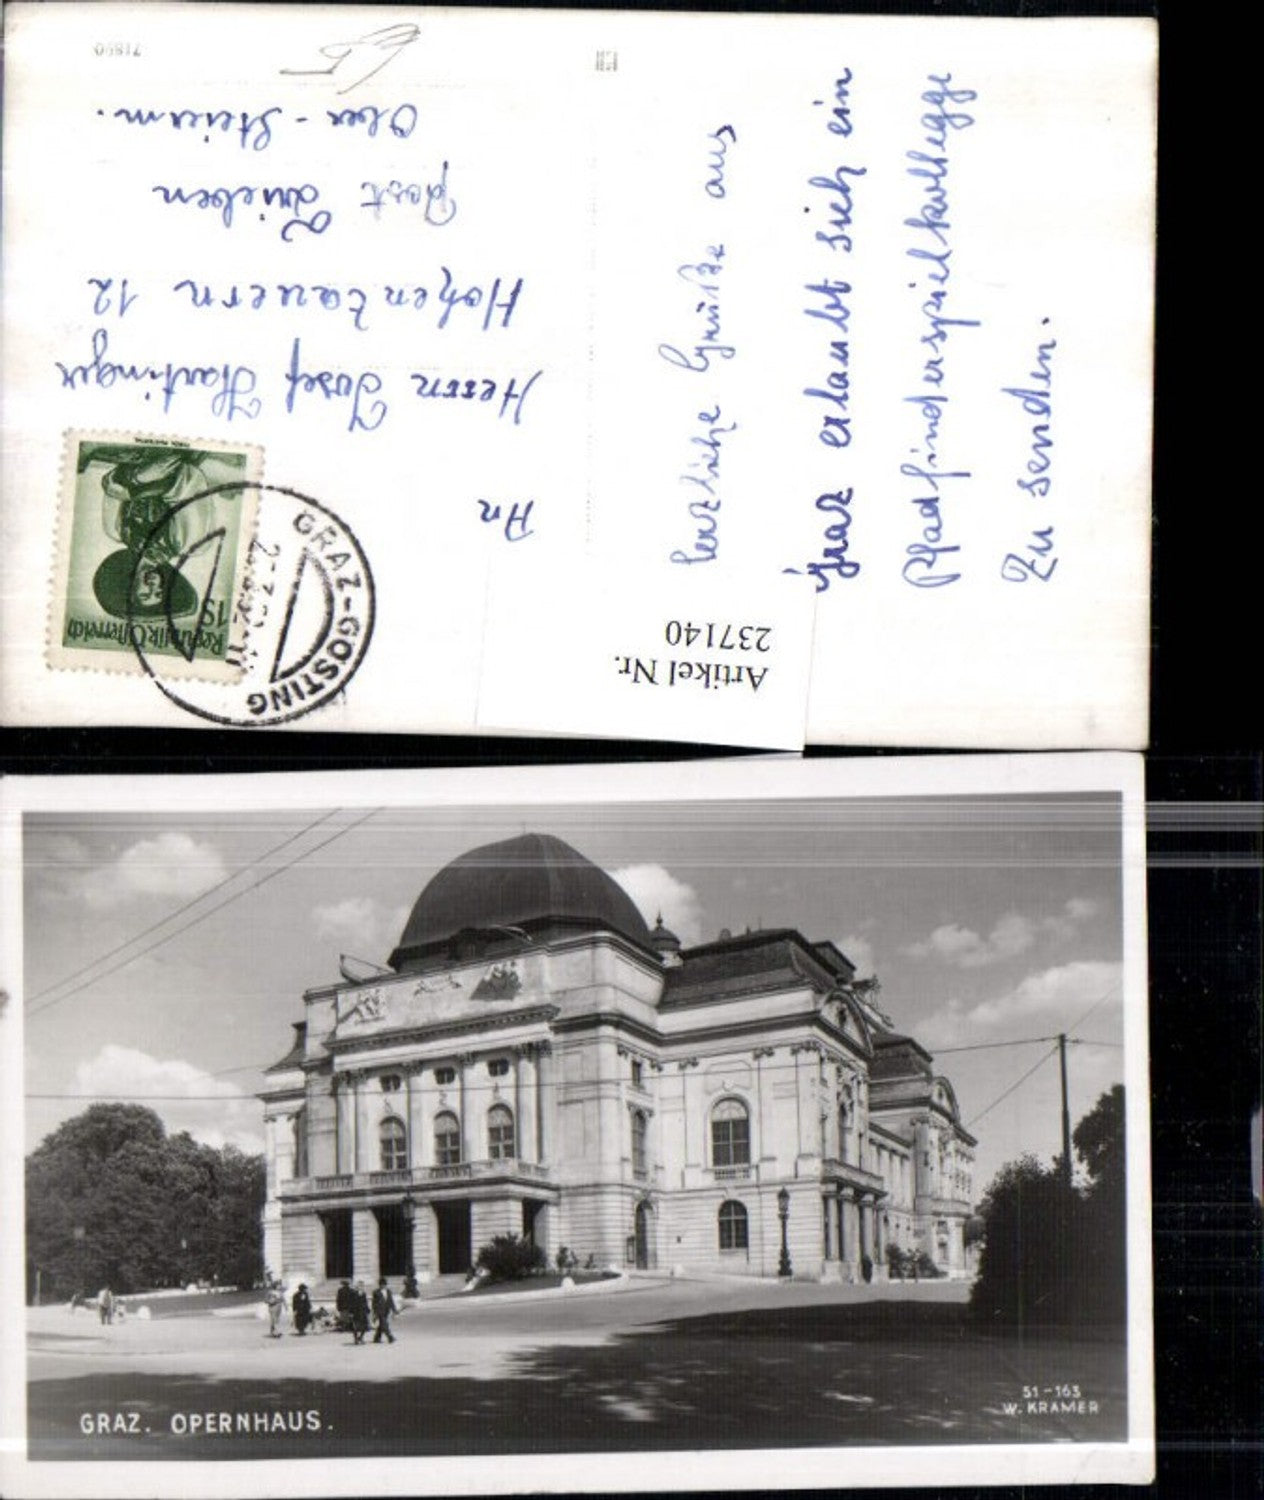 Herzliche Grüße aus
Graz erlaubt sich ein
Pfadfinderspielkollege
Zu senden.
An
Herrn Josef Hartinger
Hohentauern 12
Post Trieben
Ober-Steierm.
71890
Republik Österreich
1S
GRAZ-GÖSTING
Artikel Nr.
237140
GRAZ. OPERNHAUS.
51-163
W. KRAMER